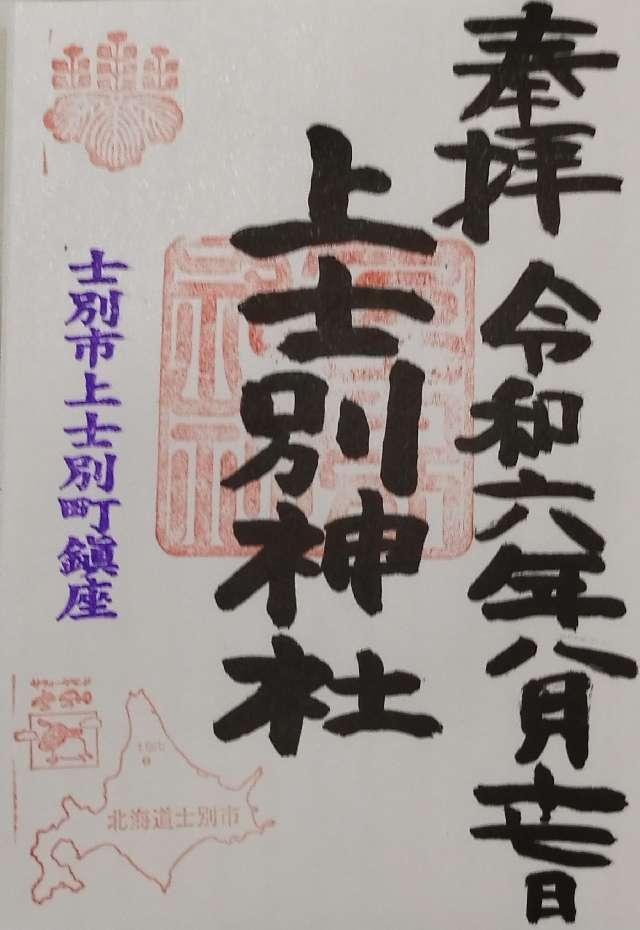 奉拝
令和六年八月廿七日
上士別神社
士別市上士別町鎮座
北海道士別市